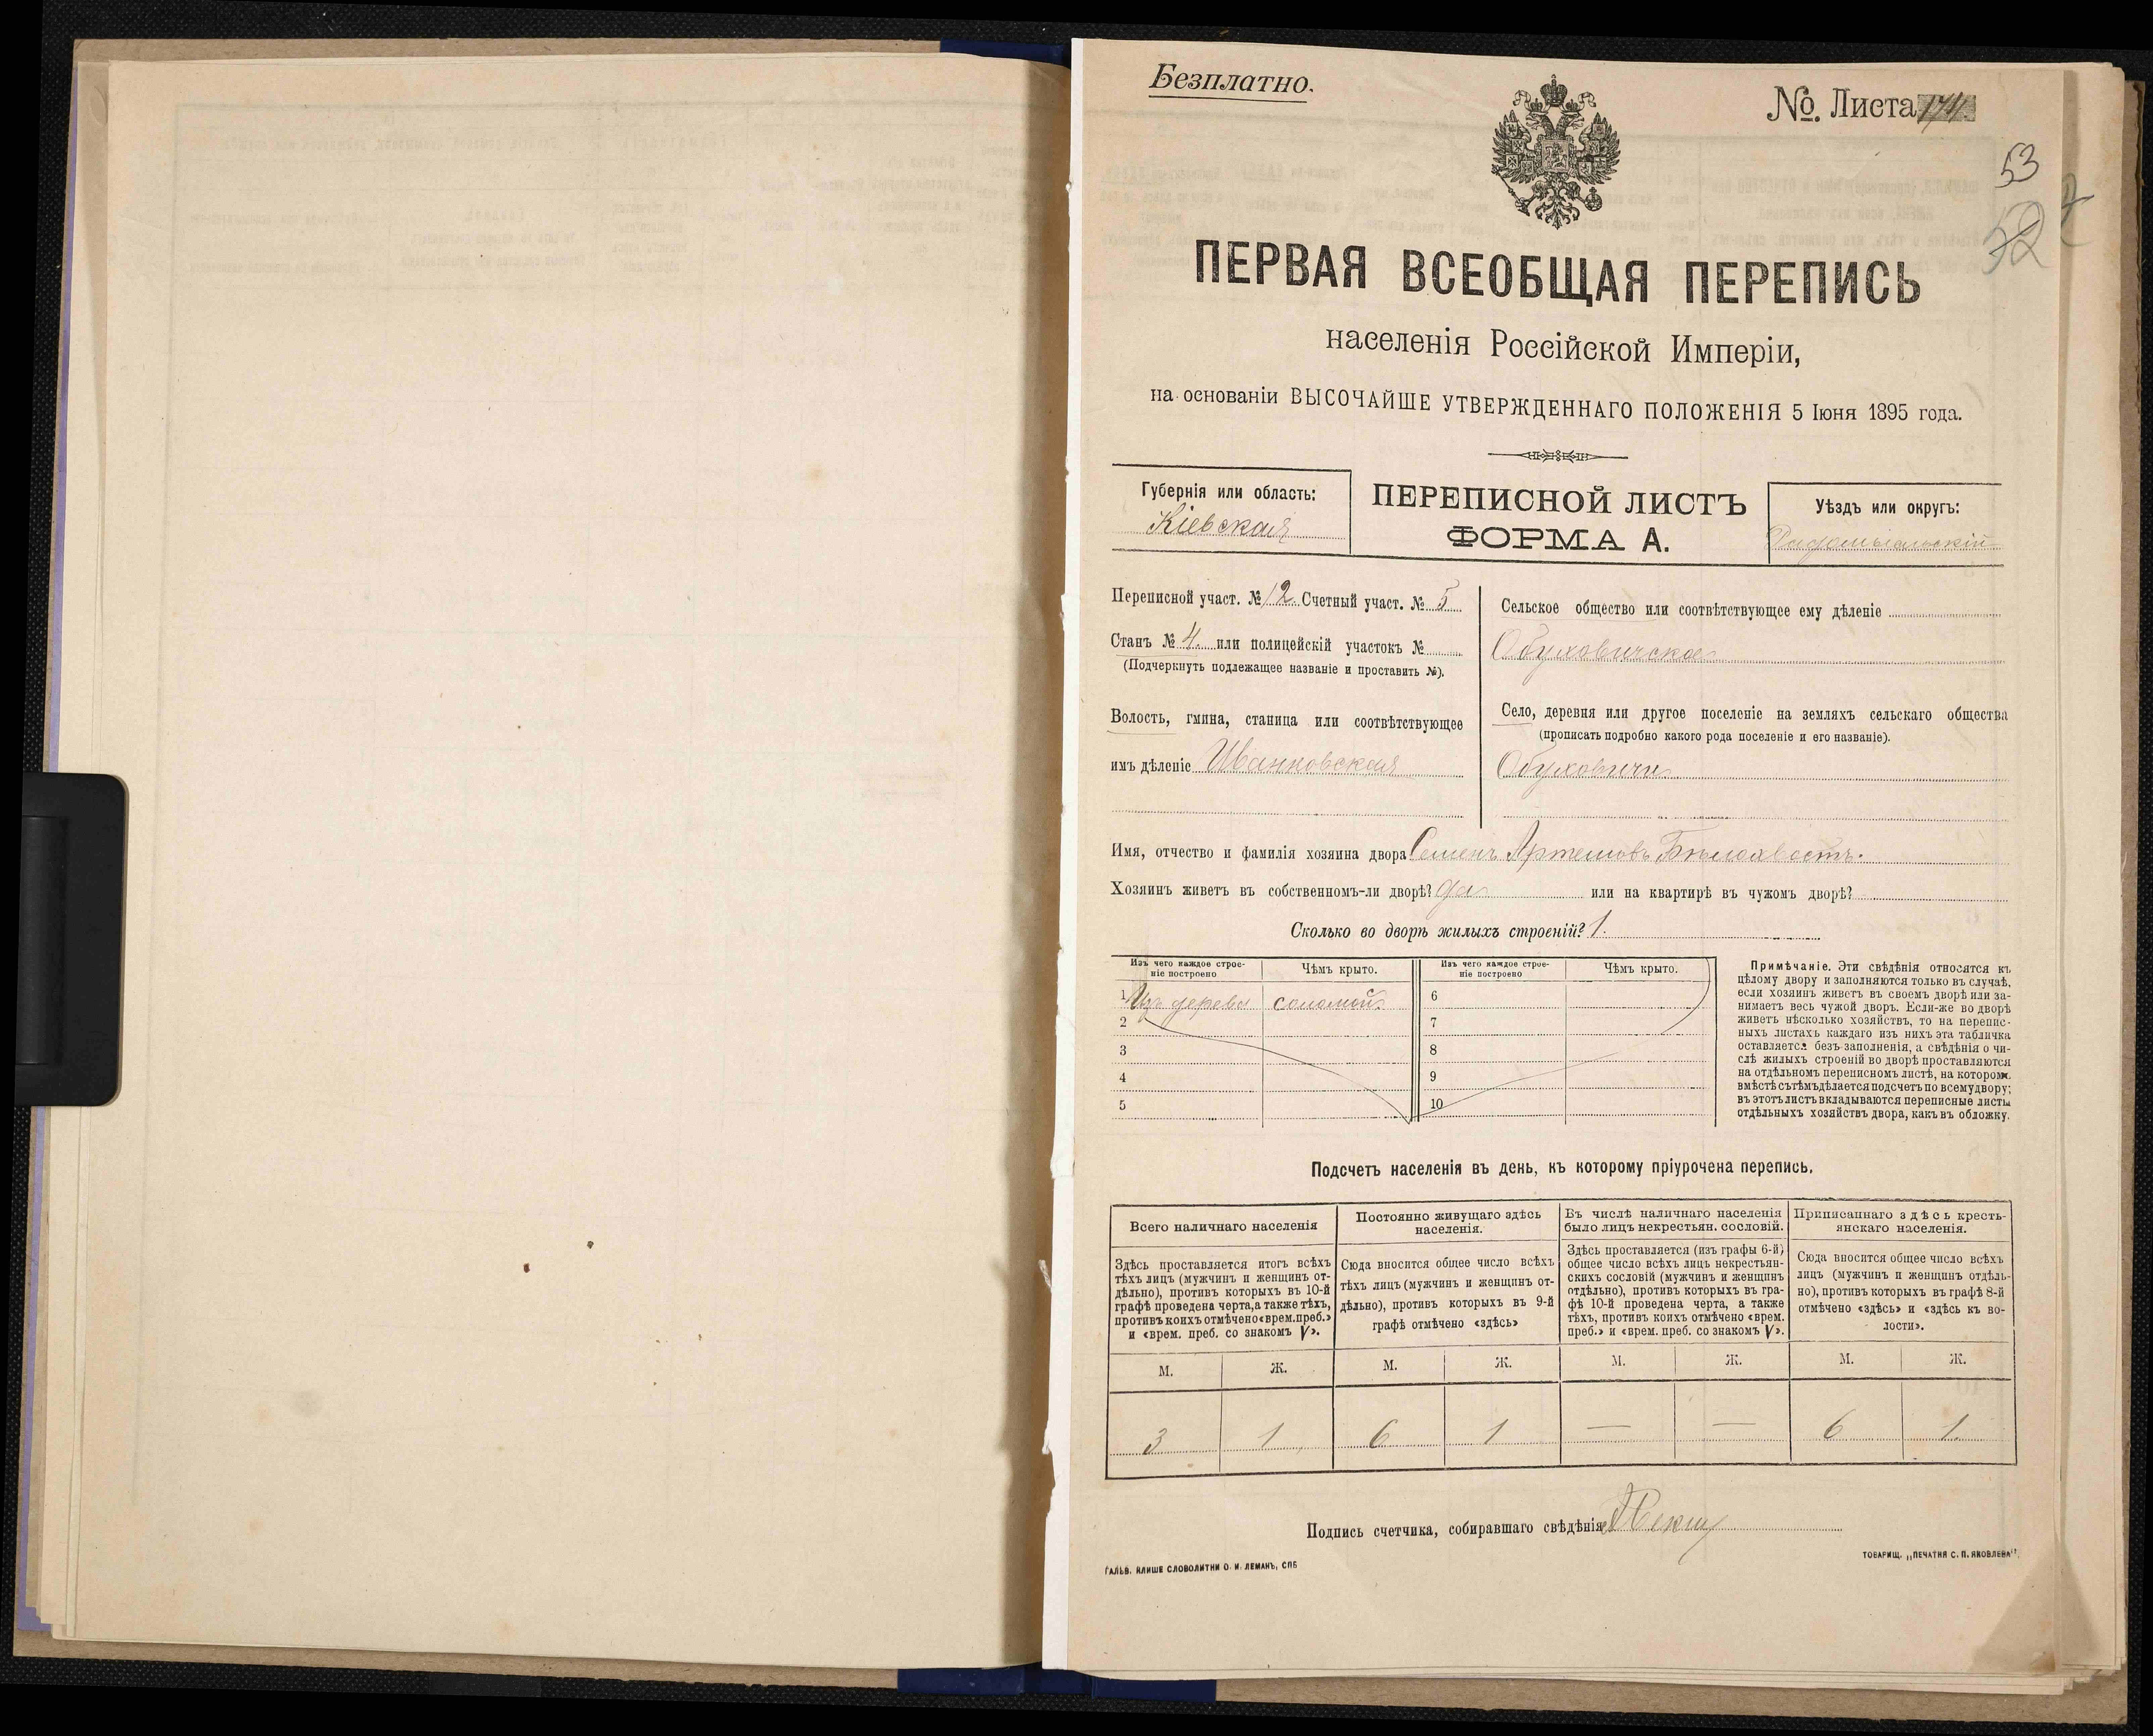 Безплатно.
№ Листа 174.
53
52
ПЕРВАЯ ВСЕОБЩАЯ ПЕРЕПИСЬ
населенія Россійской Имперіи,
на основаніи ВЫСОЧАЙШЕ УТВЕРЖДЕННАГО ПОЛОЖЕНІЯ 5 Іюня 1895 года.
Губернія или область:
Кіевская
ПЕРЕПИСНОЙ ЛИСТЪ
ФОРМА А.
Уѣздъ или округъ:
Радомысльскій
Переписной участ. № 12. Счетный участ. № 5
Станъ № 4. или полицейскій участокъ №
(Подчеркнуть подлежащее названіе и проставить №).
Волость, гмина, станица или соотвѣтствующее
имъ дѣленіе Иванковская
Сельское общество или соотвѣтствующее ему дѣленіе
Обуховичское
Село, деревня или другое поселеніе на земляхъ сельскаго общества
(прописать подробно какого рода поселеніе и его названіе).
Обуховичи
Имя, отчество и фамилія хозяина двора Семенъ Артемовъ Бѣлохвостъ.
Хозяинъ живетъ въ собственномъ-ли дворѣ? да или на квартирѣ въ чужомъ дворѣ?
Сколько во дворѣ жилыхъ строеній? 1.
Изъ чего каждое строеніе построено
Чѣмъ крыто.
Изъ чего каждое строеніе построено
Чѣмъ крыто.
1 Изъ дерева соломой 6
2 7
3 8
4 9
5 10
Примѣчаніе. Эти свѣдѣнія относятся къ
цѣлому двору и заполняются только въ случаѣ,
если хозяинъ живетъ въ своемъ дворѣ или за-
нимаетъ весь чужой дворъ. Если-же во дворѣ
живетъ нѣсколько хозяйствъ, то на перепис-
ныхъ листахъ каждаго изъ нихъ эта табличка
оставляется безъ заполненія, а свѣдѣнія о чи-
слѣ жилыхъ строеній во дворѣ проставляются
на отдѣльномъ переписномъ листѣ, на которомъ
вмѣстѣ съ тѣмъ дѣлается подсчетъ по всему двору;
въ этотъ листъ вкладываются переписные листы
отдѣльныхъ хозяйствъ двора, какъ въ обложку.
Подсчетъ населенія въ день, къ которому пріурочена перепись.
Всего наличнаго населенія
Здѣсь проставляется итогъ всѣхъ
тѣхъ лицъ (мужчинъ и женщинъ от-
дѣльно), противъ которыхъ въ 10-й
графѣ проведена черта, а также тѣхъ,
противъ коихъ отмѣчено «врем. преб.»
и «врем. преб. со знакомъ V».
Постоянно живущаго здѣсь
населенія.
Сюда вносится общее число всѣхъ
тѣхъ лицъ (мужчинъ и женщинъ от-
дѣльно), противъ которыхъ въ 9-й
графѣ отмѣчено «здѣсь»
Въ числѣ наличнаго населенія
было лицъ некрестьян. сословій.
Здѣсь проставляется (изъ графы 6-й)
общее число всѣхъ лицъ некрестьян-
скихъ сословій (мужчинъ и женщинъ
отдѣльно), противъ которыхъ въ гра-
фѣ 10-й проведена черта, а также
тѣхъ, противъ коихъ отмѣчено «врем.
преб.» и «врем. преб. со знакомъ V».
Приписаннаго здѣсь кресть-
янскаго населенія.
Сюда вносится общее число всѣхъ
лицъ (мужчинъ и женщинъ отдѣль-
но), противъ которыхъ въ графѣ 8-й
отмѣчено «здѣсь» и «здѣсь къ во-
лости».
М. Ж. М. Ж. М. Ж. М. Ж.
3 1 6 1 — — 6 1
Подпись счетчика, собиравшаго свѣдѣнія
ГАЛЬВ. КЛИШЕ СЛОВОЛИТНИ О. И. ЛЕМАНЪ, СПБ
ТОВАРИЩ. „ПЕЧАТНЯ С. П. ЯКОВЛЕВА".